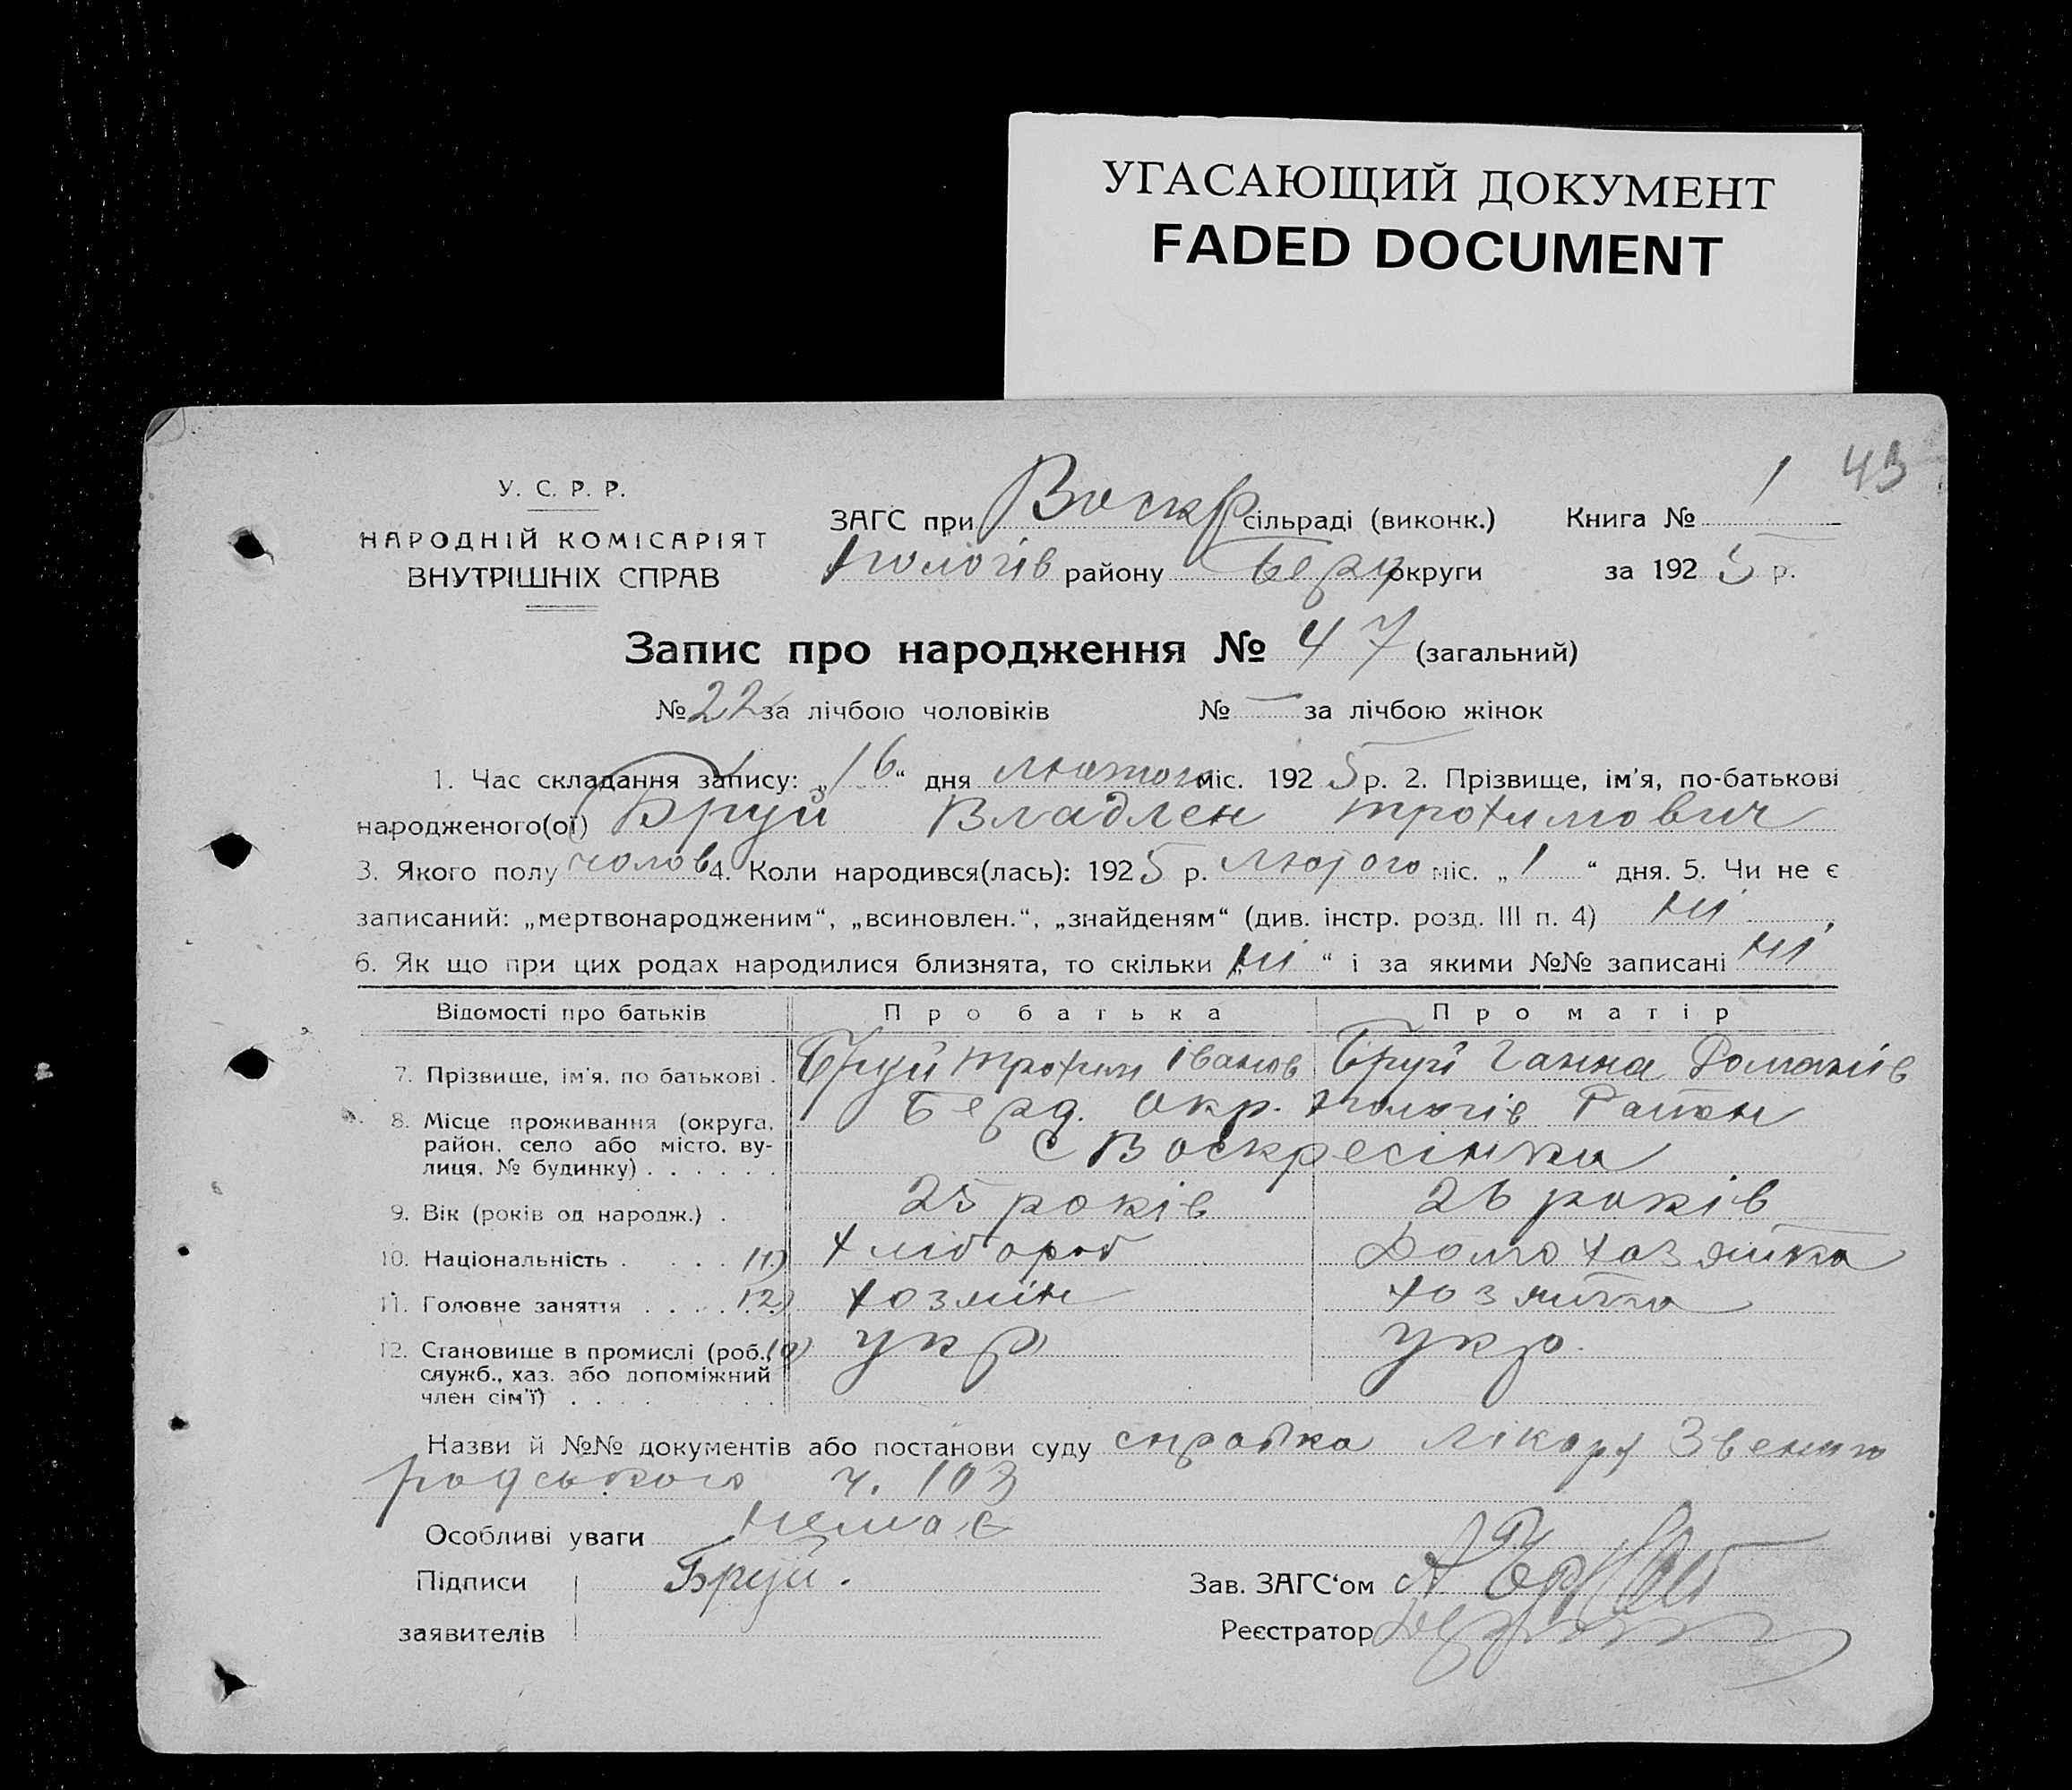 УГАСАЮЩИЙ ДОКУМЕНТ
FADED DOCUMENT
43
У. С. Р. Р.
НАРОДНІЙ КОМІСАРІЯТ
ВНУТРІШНІХ СПРАВ
ЗАГС при Воскр сільраді (виконк.) Книга № 1
Пологів району Берд округи за 1925 р.
Запис про народження № 47 (загальний)
№ 22 за лічбою чоловіків № — за лічбою жінок
1. Час складання запису: „16“ дня лютого міс. 1925 р. 2. Прізвище, ім'я, по-батькові
народженого(ої) Бруй Владлен Трохимович
3. Якого полу чолов 4. Коли народився(лась): 1925 р. лютого міс. „1“ дня. 5. Чи не є
записаний: „мертвонародженим“, „всиновлен.“, „знайденям“ (див. інстр. розд. III п. 4) ні
6. Як що при цих родах народилися близнята, то скільки „ні“ і за якими №№ записані ні
Відомості про батьків Про батька Про матір
7. Прізвище, ім'я, по батькові . Бруй Трохим Іванов Бруй Ганна Романів
8. Місце проживання (округа, Берд. Окр. Пологів Район
район, село або місто, ву- С Воскресінка
лиця, № будинку) . . . . . .
9. Вік (років од народж.) . 25 років 26 років
10. Національність . . . . 11) хлібороб Домохазяйка
11. Головне заняття . . . . 12) хозяїн хозяйка
12. Становище в промислі (роб., 10) укр укр.
служб., хаз. або допоміжний
член сім'ї) . . . .
Назви й №№ документів або постанови суду справка лікаря Звениго
родського ч. 103
Особливі уваги немає
Підписи Бруй. Зав. ЗАГС‘ом А
заявителів Реєстратор